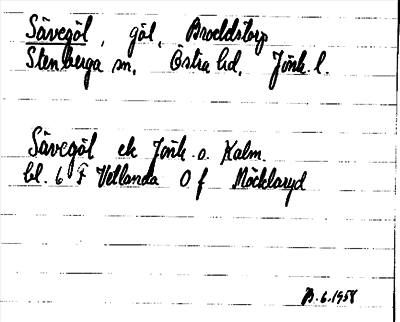 Sävegöl, göl, Brockstorp
Stenberga sn, Östra hd, Jönk. l.
Sävegöl ek Jönk. o. Kalm.
bl. 6 F Vetlanda O f Möcklaryd
6.1958